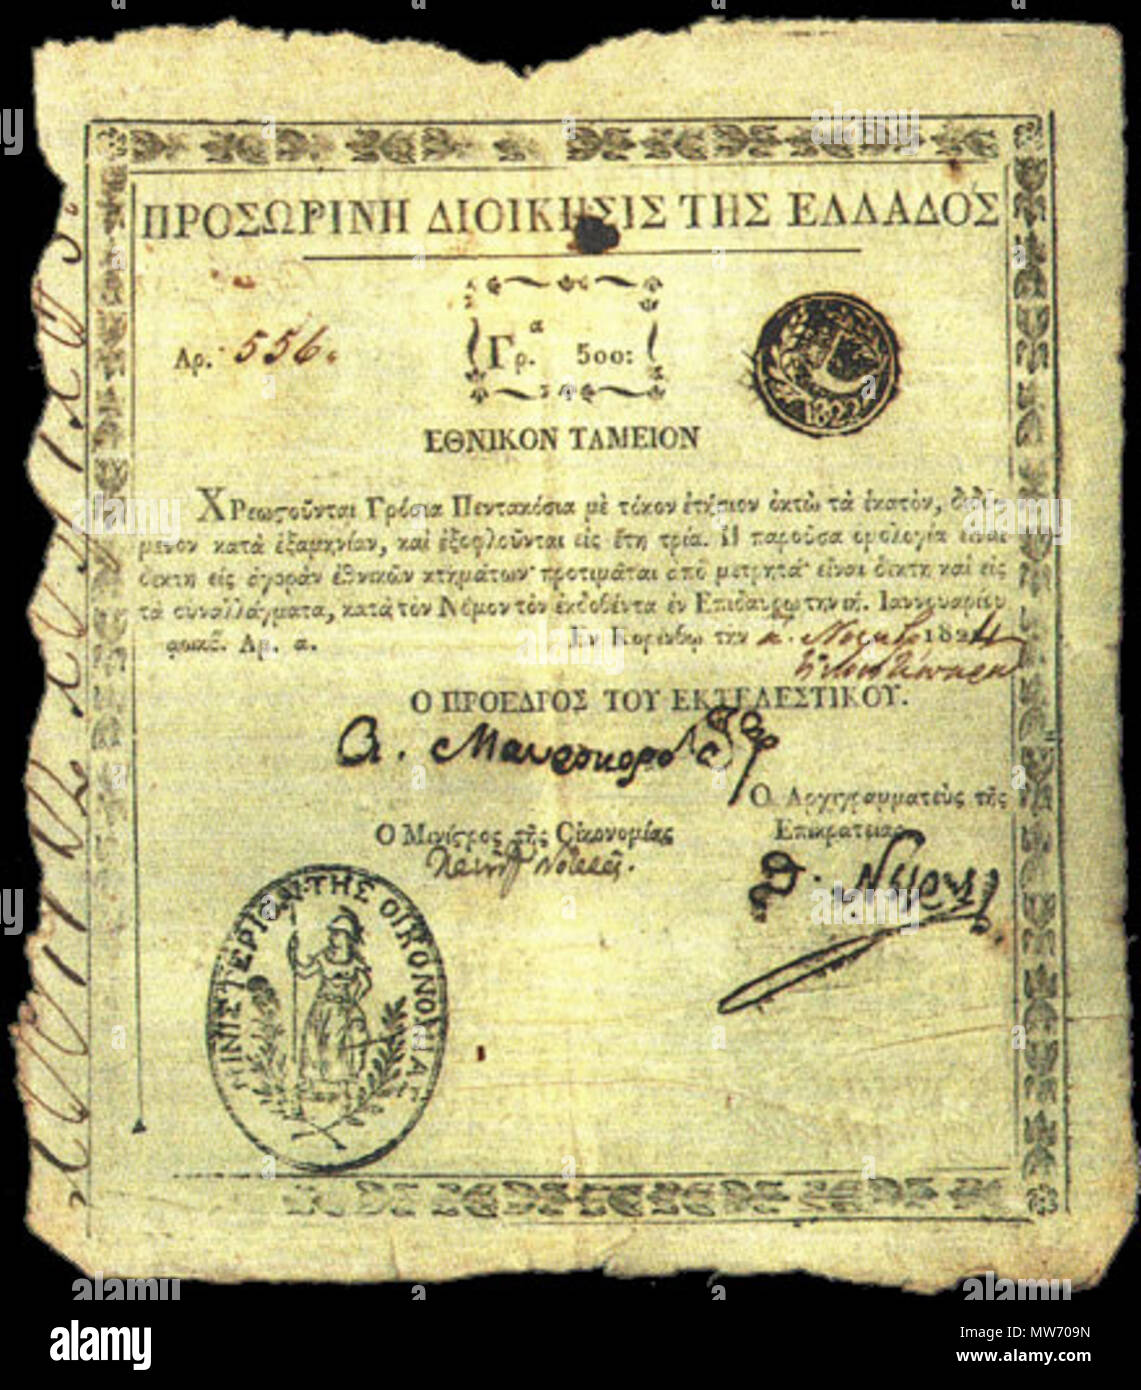 ΠΡΟΣΩΡΙΝΗ ΔΙΟΙΚΗΣΙΣ ΤΗΣ ΕΛΛΑΔΟΣ
Αρ. 556.
Γρ.α 500:
1822
ΕΘΝΙΚΟΝ ΤΑΜΕΙΟΝ
ΧΡεωςοῦνται Γρόσια Πεντακόσια μὲ τόκον ἐτήσιον ὀκτὼ τὰ ἑκατὸν, διδό-
μενον κατὰ ἑξαμηνίαν, καὶ ἐξοφλοῦνται εἰς ἔτη τρία. Η παροῦσα ομολογία εἶναι
δεκτὴ εἰς ἀγορὰν ἐθνικῶν κτημάτων· προτιμᾶται ἀπὸ μετρητὰ· εἶναι δεκτὴ καὶ εἰς
τὰ συναλλάγματα, κατὰ τὸν Νόμον τὸν ἐκδοθέντα ἐν Επιδαύρῳ τὴν ιή. Ιαννουαρίου
αωκβ. Αρ. α.
Εν Κορίνθῳ την 182
Ο ΠΡΟΕΔΡΟΣ ΤΟΥ ΕΚΤΕΛΕΣΤΙΚΟΥ.
Α. Μαυροκορδάτος
Ο Αρχιγραμματεὺς τῆς
Επικρατείας
Ο Μινίςρος τῆς Οἰκονομίας
Θ. Νέγρης
ΜΙΝΙΣΤΕΡΙΟΝ ΤΗΣ ΟΙΚΟΝΟΜΙΑΣ
alamy
a
alamy
Image ID: MW709N
www.alamy.com